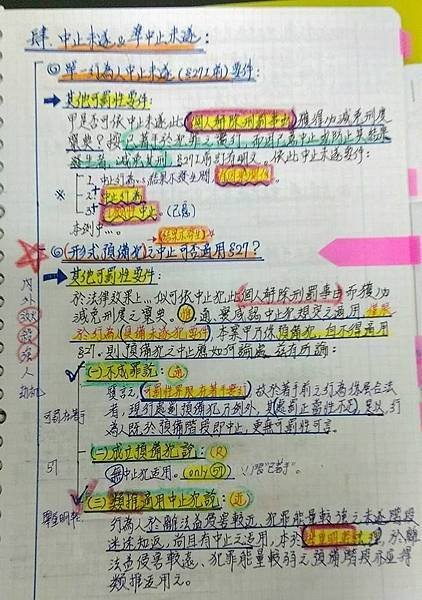 肆、中止未遂&準中止未遂：
◎單一行為人中止未遂(§27I前)要件：
→其他可罰性要件：
甲是否可依中止未遂此(個人解除刑罰事由)獲得減免刑度
寬典？按已著手於犯罪之實行，而因己意中止或防止其結果
發生者，減或免其刑，§27I前訂有明文。依此中止未遂要件：
1. 中止行為&結果不發生間
※ 2. 中止行為
3. 中止。(己意)
本例中…。
◎形式預備犯之中止可否適用§27？
→其他可罰性要件：
於法律效果上…似可依中止犯此個人解除刑罰事由而獲
減免刑度之寬典。惟，通、實咸認中止犯規定之適用，僅
於行為具備未遂犯要件。本案甲乃係預備犯，自不得適用
§27。則預備犯之中止應如何論處，茲有所論：
(一)不成罪說：(通)
發言之，可罰性界限在著手實行，故於著手前之行為係屬在法
者，現行處罰預備犯乃例外，其處罰正當性不足，是以，行
為人既於預備階段即中止，更無可罰性可言。
(二)成立預備犯說：(R)
無中止犯適用。(only 57) ∵27需"已著手"。
(三)類推適用中止犯說：(近)
行為人於離法益侵害較近、犯罪能量較強之未遂階段
迷途知返，尚且有中止之適用，本於舉重明輕法理，於離
法益侵害較遠、犯罪能量較弱之預備階段亦應得
類推適用之。
內
外
人
可罰在著行
57
舉重明輕